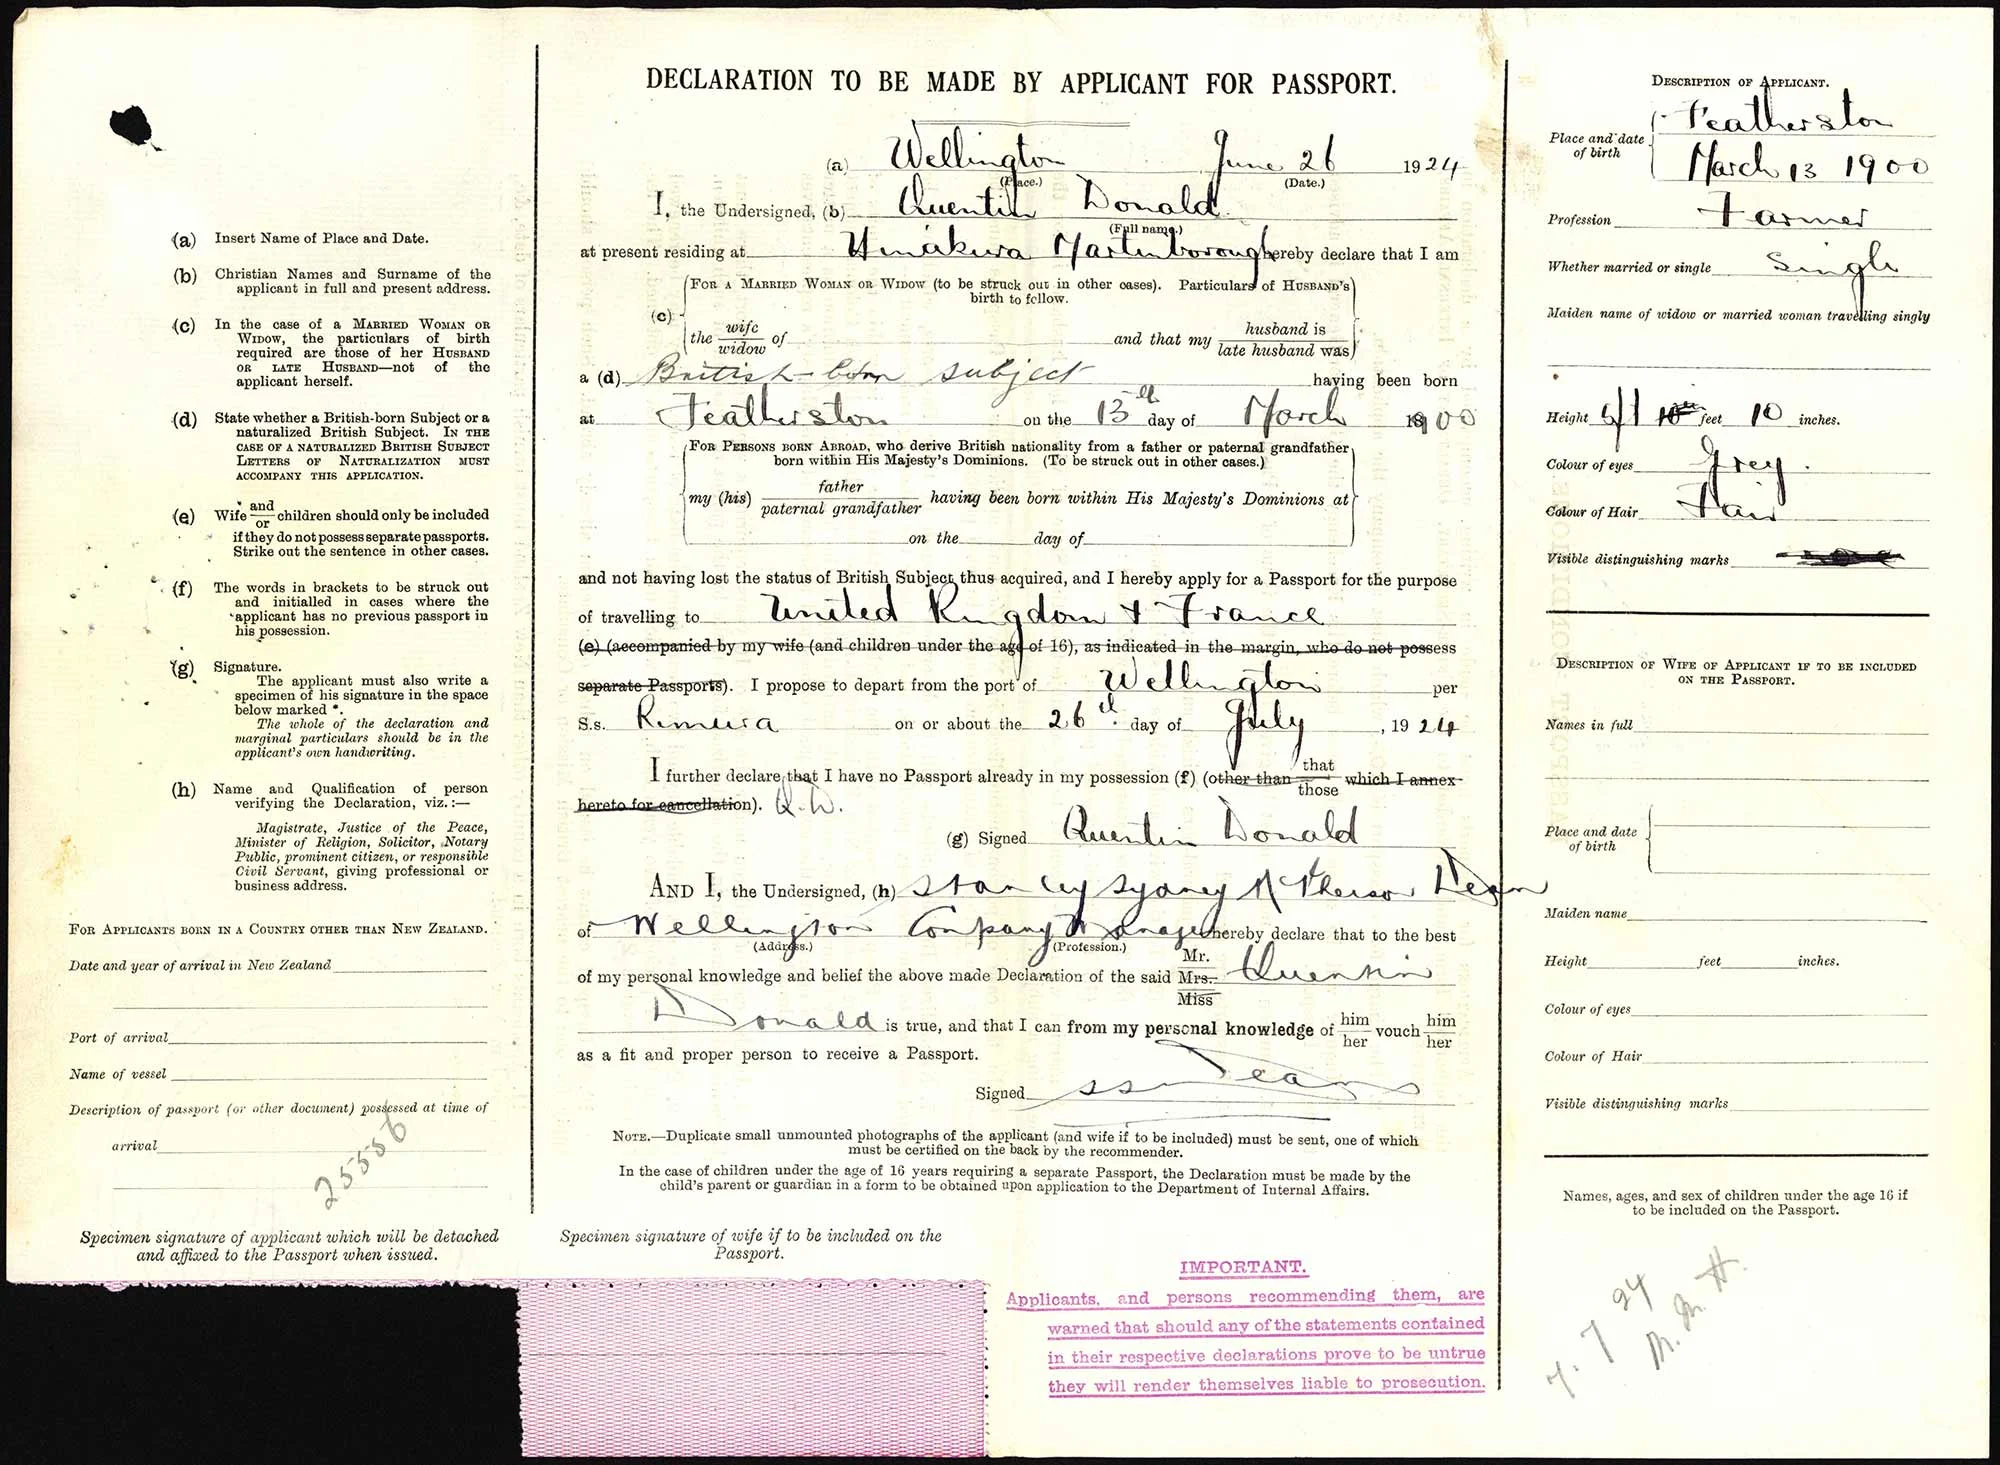 DECLARATION TO BE MADE BY APPLICANT FOR PASSPORT.
(a) Wellington June 26 1924
(Place.) (Date.)
I, the Undersigned, (b) Quentin Donald
(Full name.)
at present residing at Hinakura Martinborough hereby declare that I am
(c) FOR A MARRIED WOMAN OR WIDOW (to be struck out in other cases). Particulars of HUSBAND'S
birth to follow.
the wife of and that my husband is
widow late husband was
a (d) British-born subject having been born
at Featherston on the 13th day of March 1900
FOR PERSONS BORN ABROAD, who derive British nationality from a father or paternal grandfather
born within His Majesty's Dominions. (To be struck out in other cases.)
my (his) father having been born within His Majesty's Dominions at
paternal grandfather
on the day of
and not having lost the status of British Subject thus acquired, and I hereby apply for a Passport for the purpose
of travelling to United Kingdom + France
(e) (accompanied by my wife (and children under the age of 16), as indicated in the margin, who do not possess
separate Passports). I propose to depart from the port of Wellington per
S.s. Remuera on or about the 26th day of July, 1924
I further declare that I have no Passport already in my possession (f) (other than that which I annex
those
hereto for cancellation). Q.D.
(g) Signed Quentin Donald
AND I, the Undersigned, (h) Stanley Sydney McPherson Dean
of Wellington Company Manager hereby declare that to the best
(Address.) (Profession.)
of my personal knowledge and belief the above made Declaration of the said Mr. Quentin
Mrs.
Miss
Donald is true, and that I can from my personal knowledge of him vouch him
her her
as a fit and proper person to receive a Passport.
Signed SSM Dean
NOTE.—Duplicate small unmounted photographs of the applicant (and wife if to be included) must be sent, one of which
must be certified on the back by the recommender.
In the case of children under the age of 16 years requiring a separate Passport, the Declaration must be made by the
child's parent or guardian in a form to be obtained upon application to the Department of Internal Affairs.
Specimen signature of wife if to be included on the
Passport.
IMPORTANT.
Applicants, and persons recommending them, are
warned that should any of the statements contained
in their respective declarations prove to be untrue
they will render themselves liable to prosecution.
(a) Insert Name of Place and Date.
(b) Christian Names and Surname of the
applicant in full and present address.
(c) In the case of a MARRIED WOMAN OR
WIDOW, the particulars of birth
required are those of her HUSBAND
OR LATE HUSBAND—not of the
applicant herself.
(d) State whether a British-born Subject or a
naturalized British Subject. IN THE
CASE OF A NATURALIZED BRITISH SUBJECT
LETTERS OF NATURALIZATION MUST
ACCOMPANY THIS APPLICATION.
(e) Wife and children should only be included
or
if they do not possess separate passports.
Strike out the sentence in other cases.
(f) The words in brackets to be struck out
and initialled in cases where the
applicant has no previous passport in
his possession.
(g) Signature.
The applicant must also write a
specimen of his signature in the space
below marked *.
The whole of the declaration and
marginal particulars should be in the
applicant's own handwriting.
(h) Name and Qualification of person
verifying the Declaration, viz.:—
Magistrate, Justice of the Peace,
Minister of Religion, Solicitor, Notary
Public, prominent citizen, or responsible
Civil Servant, giving professional or
business address.
FOR APPLICANTS BORN IN A COUNTRY OTHER THAN NEW ZEALAND.
Date and year of arrival in New Zealand
Port of arrival
Name of vessel
Description of passport (or other document) possessed at time of
arrival
25556
Specimen signature of applicant which will be detached
and affixed to the Passport when issued.
DESCRIPTION OF APPLICANT.
Place and date of birth Featherston
March 13 1900
Profession Farmer
Whether married or single Single
Maiden name of widow or married woman travelling singly
Height 5ft feet 10 inches.
Colour of eyes Grey.
Colour of Hair Fair
Visible distinguishing marks
DESCRIPTION OF WIFE OF APPLICANT IF TO BE INCLUDED
ON THE PASSPORT.
Names in full
Place and date
of birth
Maiden name
Height feet inches.
Colour of eyes
Colour of Hair
Visible distinguishing marks
Names, ages, and sex of children under the age 16 if
to be included on the Passport.
7.7.24
M.M.H.